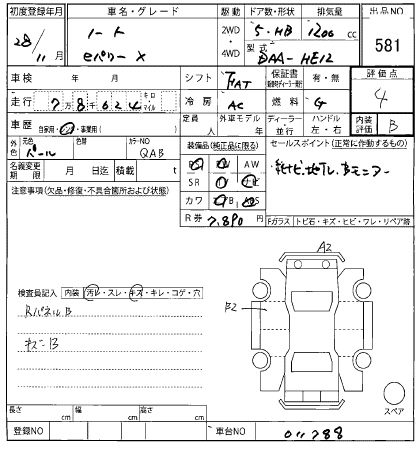 初度登録年月 車名・グレード 駆動 ドア数・形状 排気量 出品NO
28/11月 ノート 2WD・4WD 5・HB 1200cc 581
eパワー X 型式 DAA-HE12
車検 年 月 シフト FAT 保証書 有・無 評価点
走行 7万8千624 キロ マイル 冷房 AC 燃料 G 4
車歴 自家用・レンタ・事業用( ) 定員 人 外車モデル 年 ディーラー・並行 ハンドル 左・右 内装評価 B
外色 元色 パール 色替 カラーNO QAB 装備品(純正品に限る) セールスポイント(正常に作動するもの)
名義変更期限 月 日迄 積載 t AW
注意事項(欠品・修復・不具合箇所および状態) SR
カワ
R券 7,890円 Fガラス トビ石・キズ・ヒビ・ワレ・リペア跡
A2
検査員記入 内装 汚レ・スレ・キズ・キレ・コゲ・穴
RパネルB
B2
キズ-B
スペア
長さ cm 幅 cm 高さ cm
登録NO 車台NO 011788